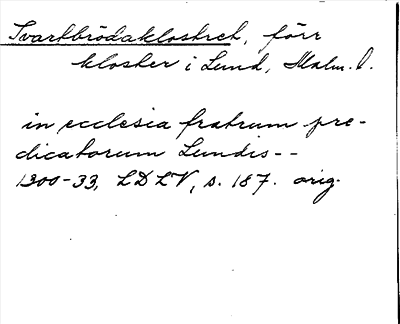 Svartbrödaklostret, förr
kloster i Lund, Malm. l.
in ecclesia fratrum pre-
dicatorum Lundis--
1300-33, LDLV, s. 187. orig.